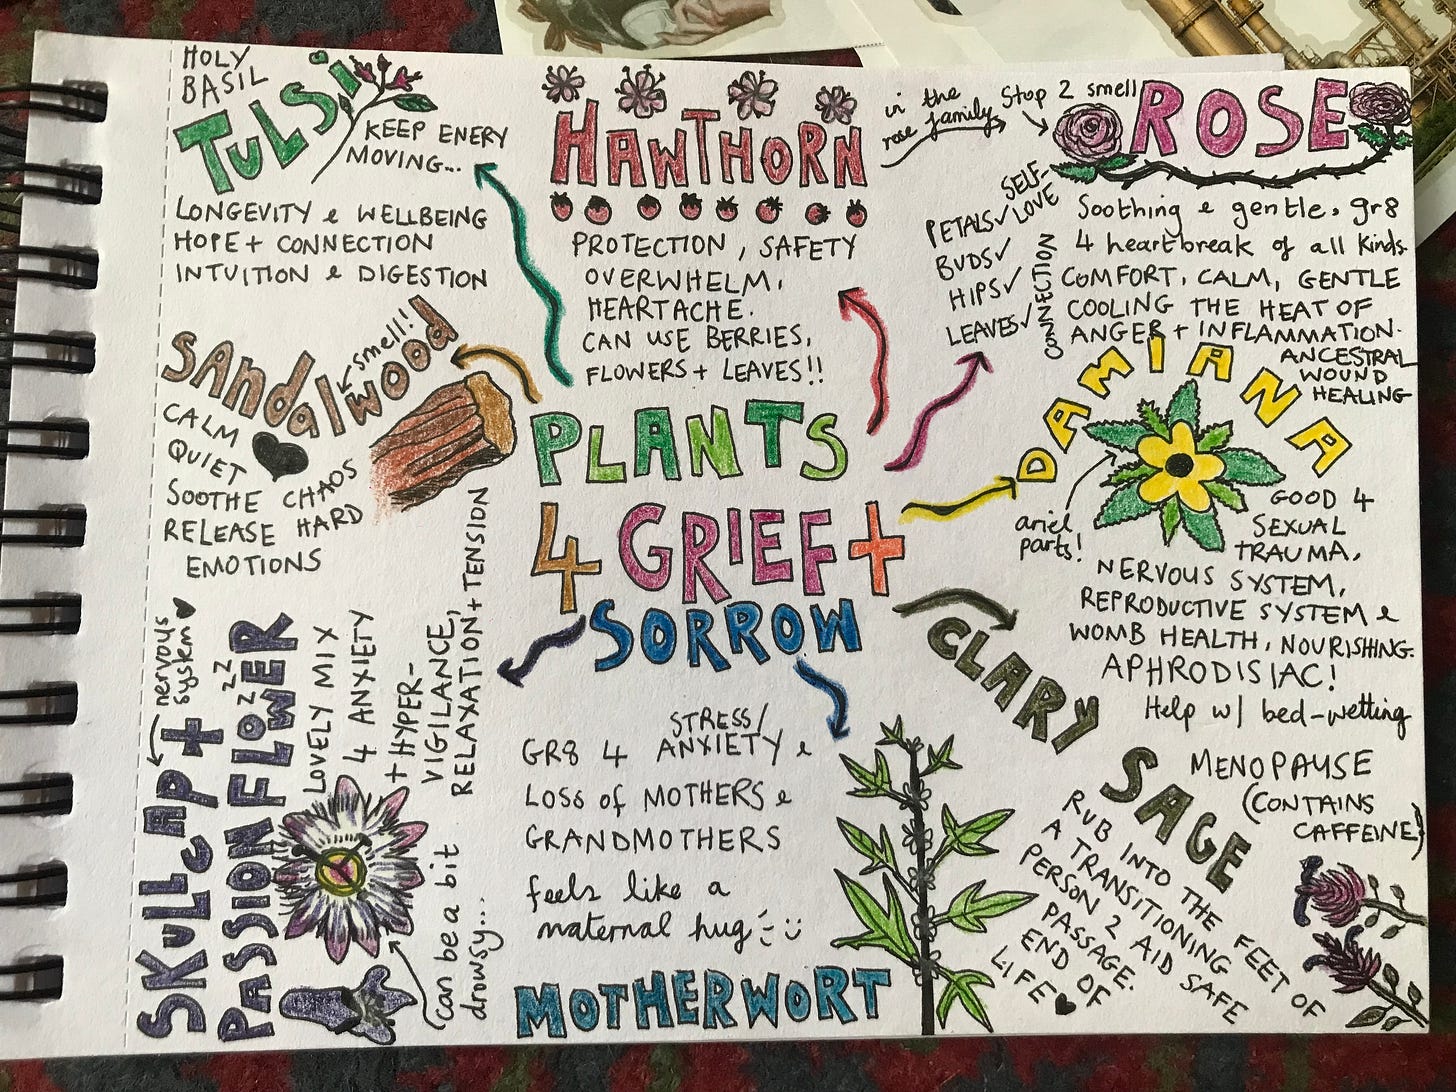 PLANTS
4 GRIEF +
SORROW
HOLY
BASIL
TULSI
KEEP ENERY
MOVING...
LONGEVITY & WELLBEING
HOPE + CONNECTION
INTUITION & DIGESTION
HAWTHORN
PROTECTION, SAFETY
OVERWHELM,
HEARTACHE.
CAN USE BERRIES,
FLOWERS + LEAVES!!
in the
rose family
Stop 2 smell
ROSE
SELF-
LOVE
PETALS ✓
BUDS ✓
HIPS ✓
LEAVES ✓
CONNECTION
Soothing & gentle, gr8
4 heartbreak of all kinds.
COMFORT, CALM, GENTLE
COOLING THE HEAT OF
ANGER + INFLAMMATION.
ANCESTRAL
WOUND
HEALING
DAMIANA
ariel
parts!
GOOD 4
SEXUAL
TRAUMA,
NERVOUS SYSTEM,
REPRODUCTIVE SYSTEM &
WOMB HEALTH, NOURISHING.
APHRODISIAC!
Help w/ bed-wetting
CLARY SAGE
MENOPAUSE
(CONTAINS
CAFFEINE)
RUB INTO THE FEET OF
A TRANSITIONING
PERSON 2 AID SAFE
PASSAGE.
END OF
LIFE ♥
GR8 4 STRESS/
ANXIETY &
LOSS of MOTHERS &
GRANDMOTHERS
feels like a
maternal hug :)
MOTHERWORT
SKULLCAP +
PASSION FLOWER
zzz
nervous
system ♥
LOVELY MIX
4 ANXIETY
+ HYPER-
VIGILANCE,
RELAXATION + TENSION
can be a bit
drowsy...
SANDALWOOD
smell!
CALM
QUIET
SOOTHE CHAOS
RELEASE HARD
EMOTIONS